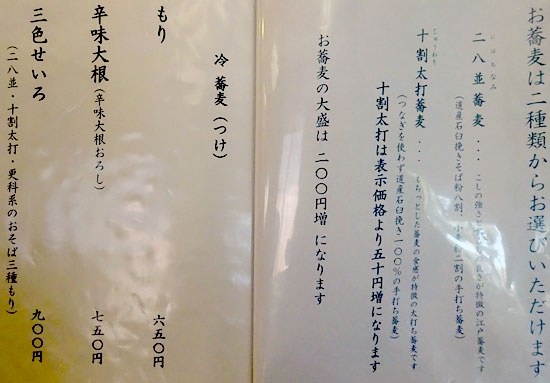 お蕎麦は二種類からお選びいただけます
にはちなみ
二八並蕎麦 ・・・ こしの強さと
良さが特徴の江戸蕎麦です
(道産石臼挽きそば粉八割、小麦粉二割の手打ち蕎麦)
じゅうわり
十割太打蕎麦 ・・・ もちっとした蕎麦の食感が特徴の太打ち蕎麦です
(つなぎを使わず道産石臼挽き一〇〇%の手打ち蕎麦)
十割太打は表示価格より五十円増になります
お蕎麦の大盛は 二〇〇円増 になります
冷 蕎麦 (つけ)
もり 六五〇円
辛味大根 (辛味大根おろし) 七五〇円
三色せいろ 九〇〇円
(二八並・十割太打・更科系のおそば三種もり)